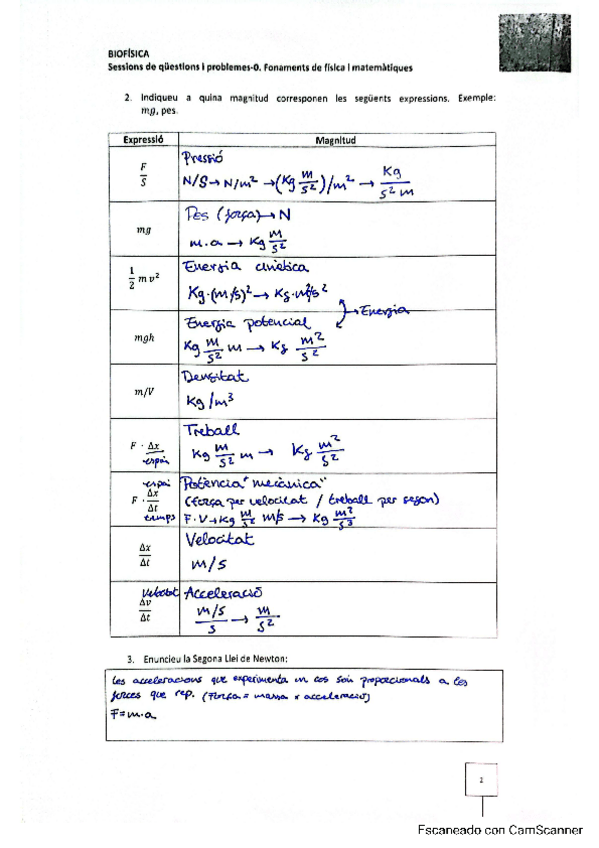 BIOFÍSICA
Sessions de qüestions i problemes-0. Fonaments de física i matemàtiques
2. Indiqueu a quina magnitud corresponen les següents expressions. Exemple:
mg, pes.
Expressió Magnitud
F/S Pressió
N/S → N/m² → (Kg m/s²)/m² → Kg/s² m
mg Pes (força) → N
m·a → Kg m/s²
1/2 m v² Energia cinètica
Kg·(m/s)² → Kg·m²/s²
→ Energia
mgh Energia potencial
Kg m/s² m → Kg m²/s²
m/V Densitat
Kg/m³
F · Δx Treball
espai Kg m/s² m → Kg m²/s²
espai Potència "mecànica"
F · Δx/Δt (força per velocitat / treball per segon)
temps F·V → Kg m/s² m/s → Kg m²/s³
Δx/Δt Velocitat
m/s
velocitat Acceleració
Δv/Δt m/s/s → m/s²
3. Enuncieu la Segona Llei de Newton:
Les acceleracions que experimenta un cos són proporcionals a les
forces que rep. (Força = massa x acceleració)
F=m·a
2
Escaneado con CamScanner